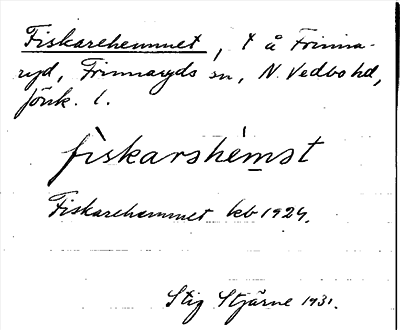 Fiskarehemmet, t å Frinna-
ryd, Frinnaryds sn, N. Vedbo hd,
Jönk. l.
fìskarshèmət
Fiskarehemmet kb 1924.
Stig Stjärne 1931.